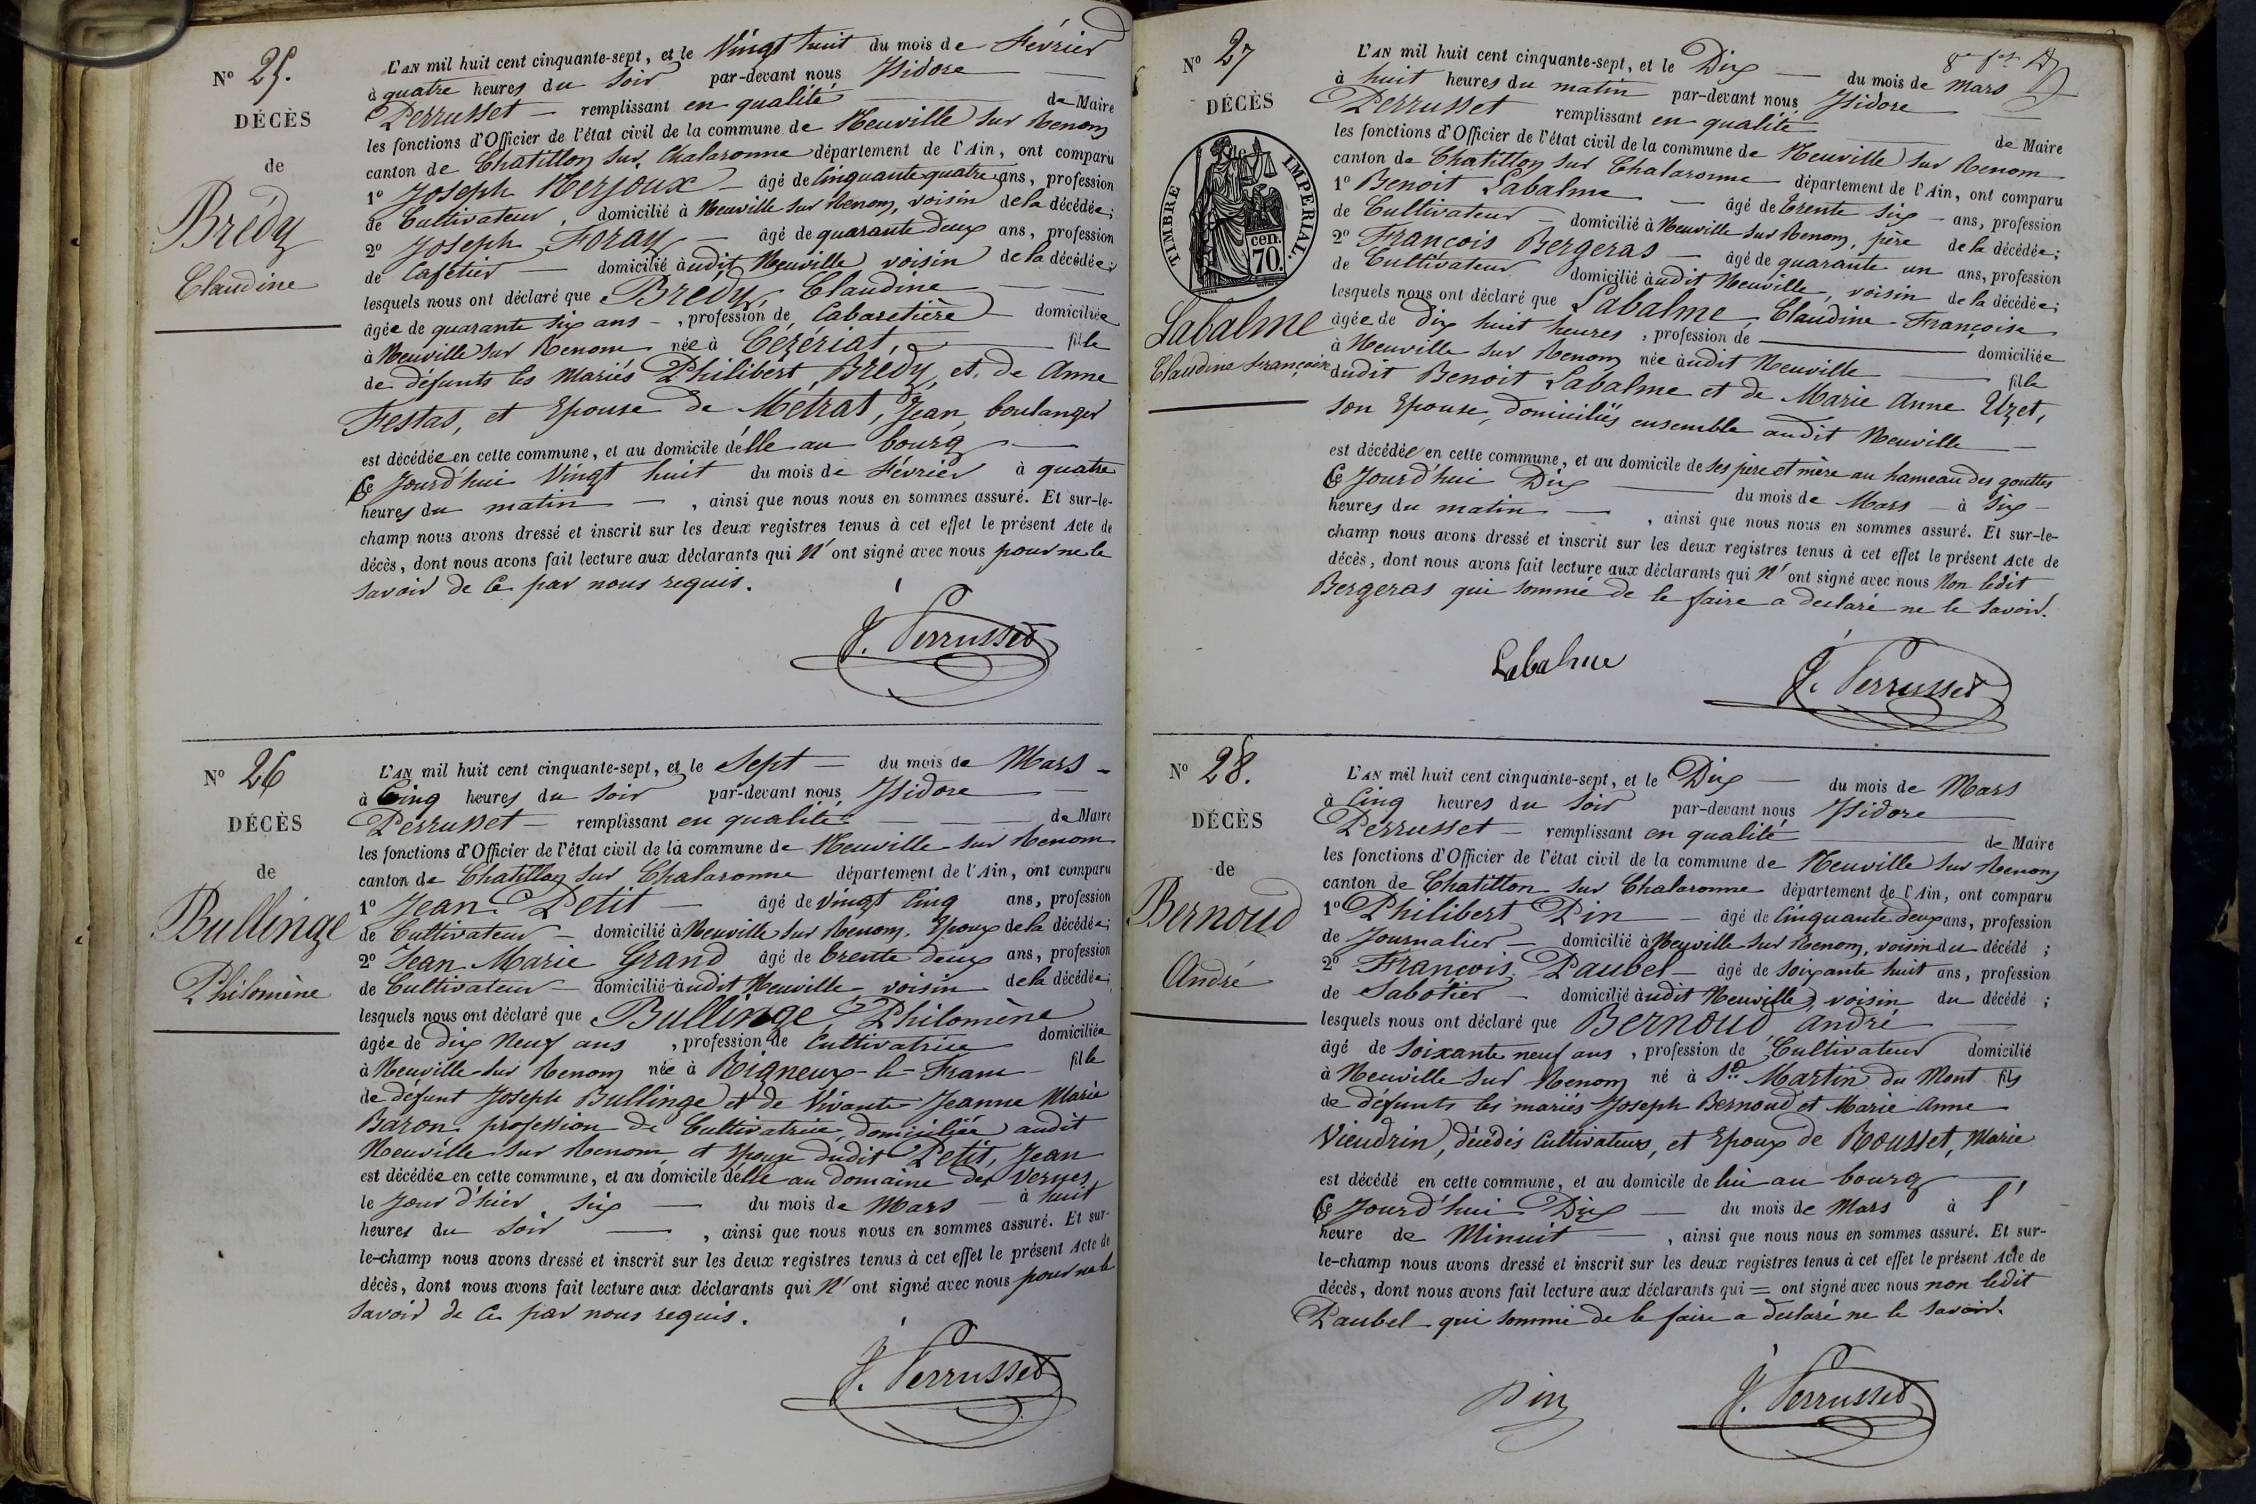 N° 25.
DÉCÈS
de
Brédy
Claudine
L'AN mil huit cent cinquante-sept, et le Vingt huit du mois de Février
à quatre heures du soir par-devant nous Isidore
Perrusset remplissant en qualité de Maire
les fonctions d'Officier de l'état civil de la commune de Neuville sur Renom
canton de Chatillon sur Chalaronne département de l'Ain, ont comparu
1° Joseph Nerjoux âgé de Cinquante quatre ans, profession
de Cultivateur, domicilié à Neuville sur Renom, voisin de la décédée;
2° Joseph Foray âgé de quarante deux ans, profession
de Cafetier domicilié audit Neuville voisin de la décédée;
lesquels nous ont déclaré que Brédy, Claudine
âgée de quarante six ans, profession de Cabaretière domiciliée
à Neuville sur Renom née à Cézériat, fille
de défunts les mariés Philibert Brédy, et de Anne
Festas, et Epouse de Métrat, Jean, boulanger
est décédée en cette commune, et au domicile d'elle au bourg
Ce Jourd'hui Vingt huit du mois de Février à quatre
heures du matin, ainsi que nous nous en sommes assuré. Et sur-le-
champ nous avons dressé et inscrit sur les deux registres tenus à cet effet le présent Acte de
décès, dont nous avons fait lecture aux déclarants qui N' ont signé avec nous pour ne le
savoir de ce par nous requis.
J. Perrusset
N° 26
DÉCÈS
de
Bullinge
Philomène
L'AN mil huit cent cinquante-sept, et le Sept du mois de Mars
à Cinq heures du soir par-devant nous Isidore
Perrusset remplissant en qualité de Maire
les fonctions d'Officier de l'état civil de la commune de Neuville sur Renom
canton de Chatillon sur Chalaronne département de l'Ain, ont comparu
1° Jean Petit âgé de vingt Cinq ans, profession
de Cultivateur domicilié à Neuville sur Renom, Epoux de la décédée;
2° Jean Marie Grand âgé de trente deux ans, profession
de Cultivateur domicilié audit Neuville voisin de la décédée;
lesquels nous ont déclaré que Bullinge, Philomène
âgée de dix Neuf ans, profession de Cultivatrice domiciliée
à Neuville sur Renom née à Rigneux-le-Franc fille
de défunt Joseph Bullinge et de Vivante Jeanne Marie
Baron profession de Cultivatrice, domiciliée audit
Neuville sur Renom et Epouse dudit Petit, Jean
est décédée en cette commune, et au domicile d'elle au domaine des Vernes
le Jour d'hier six du mois de Mars à huit
heures du soir, ainsi que nous nous en sommes assuré. Et sur-
le-champ nous avons dressé et inscrit sur les deux registres tenus à cet effet le présent Acte de
décès, dont nous avons fait lecture aux déclarants qui N' ont signé avec nous pour ne le
savoir de ce par nous requis.
J. Perrusset
N° 27
DÉCÈS
de
TIMBRE IMPERIAL.
cen.
70.
Labalme
Claudine Françoise
L'AN mil huit cent cinquante-sept, et le Dix du mois de Mars
à huit heures du matin par-devant nous Isidore
Perrusset remplissant en qualité de Maire
les fonctions d'Officier de l'état civil de la commune de Neuville sur Renom
canton de Chatillon sur Chalaronne département de l'Ain, ont comparu
1° Benoit Labalme âgé de trente six ans, profession
de Cultivateur domicilié à Neuville sur Renom, père de la décédée;
2° François Bergeras âgé de quarante un ans, profession
de Cultivateur domicilié audit Neuville, voisin de la décédée;
lesquels nous ont déclaré que Labalme, Claudine Françoise
âgée de dix huit heures, profession de domiciliée
à Neuville sur Renom née audit Neuville fille
dudit Benoit Labalme et de Marie Anne Uzet,
son Epouse, domiciliés ensemble audit Neuville
est décédée en cette commune, et au domicile de ses père et mère au hameau des gouttes
Ce Jourd'hui Dix du mois de Mars à six
heures du matin, ainsi que nous nous en sommes assuré. Et sur-le-
champ nous avons dressé et inscrit sur les deux registres tenus à cet effet le présent Acte de
décès, dont nous avons fait lecture aux déclarants qui N' ont signé avec nous Non ledit
Bergeras qui sommé de le faire a declaré ne le savoir.
Labalme
J. Perrusset
N° 28.
DÉCÈS
de
Bernoud
André
L'AN mil huit cent cinquante-sept, et le Dix du mois de Mars
à Cinq heures du soir par-devant nous Isidore
Perrusset remplissant en qualité de Maire
les fonctions d'Officier de l'état civil de la commune de Neuville sur Renom
canton de Chatillon sur Chalaronne département de l'Ain, ont comparu
1° Philibert Pin âgé de Cinquante deux ans, profession
de Journalier domicilié à Neuville sur Renom, voisin du décédé;
2° François Paubel âgé de soixante huit ans, profession
de Sabotier domicilié audit Neuville, voisin du décédé;
lesquels nous ont déclaré que Bernoud, André
âgé de soixante neuf ans, profession de Cultivateur domicilié
à Neuville sur Renom né à St. Martin du Mont fils
de défunts les mariés Joseph Bernoud et Marie Anne
Vieudrin, décédés Cultivateurs, et Epoux de Rousset, Marie
est décédé en cette commune, et au domicile de lui au bourg
Ce Jourd'hui Dix du mois de Mars à l'
heure de Minuit, ainsi que nous nous en sommes assuré. Et sur-
le-champ nous avons dressé et inscrit sur les deux registres tenus à cet effet le présent Acte de
décès, dont nous avons fait lecture aux déclarants qui = ont signé avec nous non ledit
Paubel qui sommé de le faire a declaré ne le savoir.
Pin
J. Perrusset